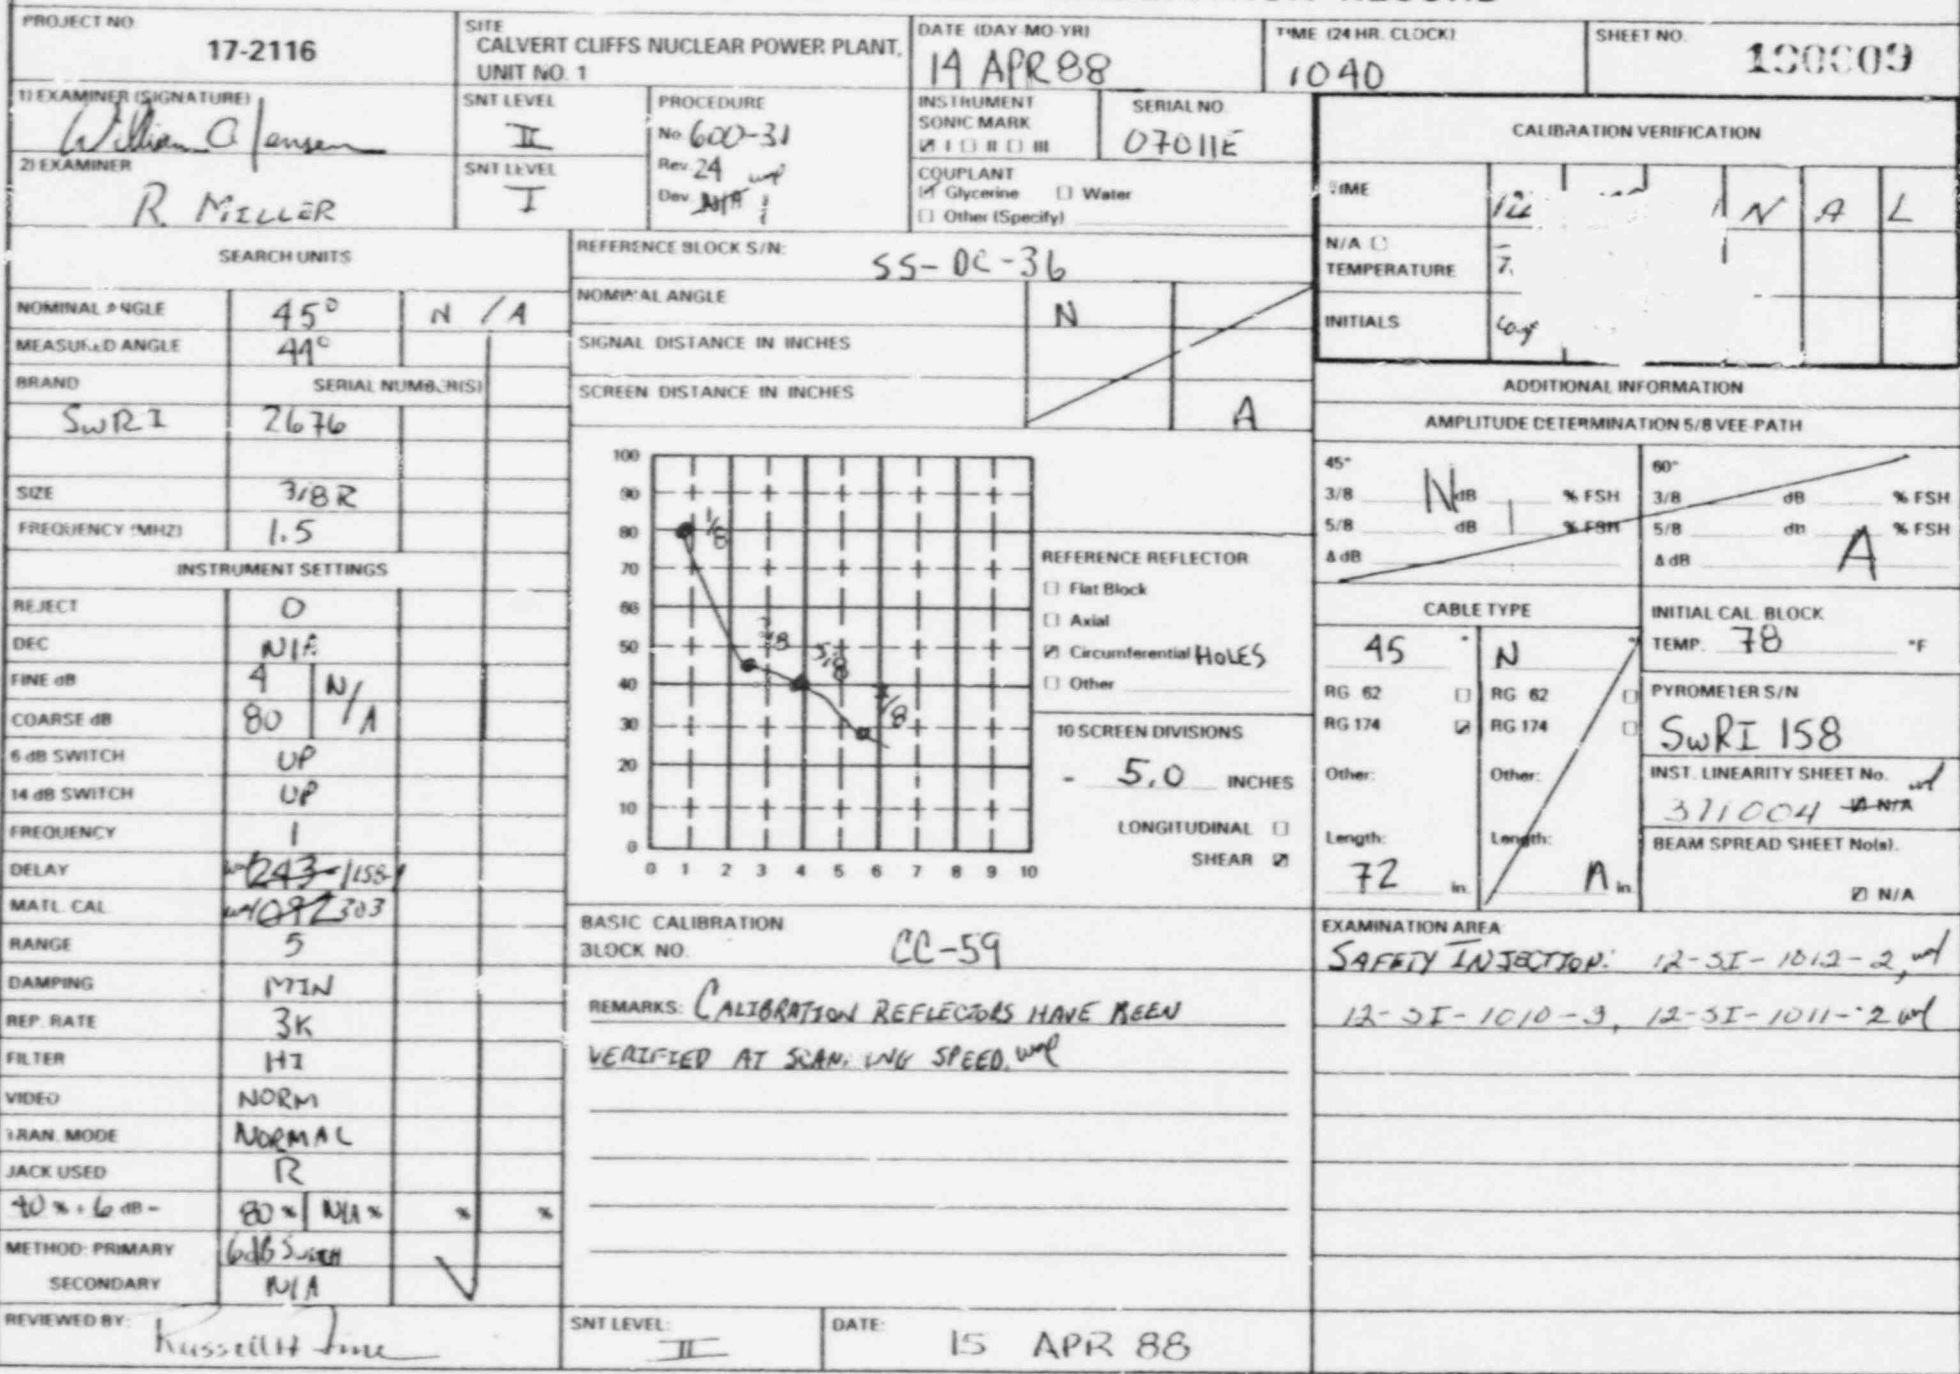 PROJECT NO.
17-2116
SITE
CALVERT CLIFFS NUCLEAR POWER PLANT,
UNIT NO. 1
DATE (DAY-MO-YR)
14 APR 88
TIME (24 HR. CLOCK)
1040
SHEET NO.
1) EXAMINER (SIGNATURE)
SNT LEVEL
II
2) EXAMINER
R. MILLER
SNT LEVEL
I
PROCEDURE
No. 600-31
Rev. 24
Dev. N/A
INSTRUMENT
SONIC MARK
☑ I ☐ II ☐ III
SERIAL NO.
07011E
COUPLANT
☑ Glycerine ☐ Water
☐ Other (Specify)
CALIBRATION VERIFICATION
TIME
N A L
N/A ☐
TEMPERATURE
INITIALS
SEARCH UNITS
NOMINAL ANGLE 45° N / A
MEASURED ANGLE 44°
BRAND SERIAL NUMBER(S)
SwRI 2676
SIZE 3/8 R
FREQUENCY (MHZ) 1.5
INSTRUMENT SETTINGS
REJECT 0
DEC N/A
FINE dB 4 N/A
COARSE dB 80
6 dB SWITCH UP
14 dB SWITCH UP
FREQUENCY 1
DELAY 243 1158
MATL. CAL. 092 303
RANGE 5
DAMPING MIN
REP. RATE 3K
FILTER HI
VIDEO NORM
TRAN. MODE NORMAL
JACK USED R
40 % + 6 dB - 80 % N/A % % %
METHOD: PRIMARY 6dB SWITCH
SECONDARY N/A
REFERENCE BLOCK S/N:
SS-DC-36
NOMINAL ANGLE N
SIGNAL DISTANCE IN INCHES
SCREEN DISTANCE IN INCHES A
100
90
80
70
60
50
40
30
20
10
0
0 1 2 3 4 5 6 7 8 9 10
1/8
3/8
5/8
7/8
REFERENCE REFLECTOR
☐ Flat Block
☐ Axial
☑ Circumferential HOLES
☐ Other
10 SCREEN DIVISIONS
- 5.0 INCHES
LONGITUDINAL ☐
SHEAR ☑
BASIC CALIBRATION
BLOCK NO. CC-59
REMARKS: CALIBRATION REFLECTORS HAVE BEEN
VERIFIED AT SCANNING SPEED.
ADDITIONAL INFORMATION
AMPLITUDE DETERMINATION 5/8 VEE-PATH
45°
3/8 N dB % FSH
5/8 dB % FSH
Δ dB
60°
3/8 dB % FSH
5/8 dB % FSH
Δ dB A
CABLE TYPE
45 ° N °
RG 62 ☐ RG 62 ☐
RG 174 ☑ RG 174 ☐
Other: Other:
Length: Length:
72 in. A in.
INITIAL CAL. BLOCK
TEMP. 78 °F
PYROMETER S/N
SwRI 158
INST. LINEARITY SHEET No.
311004 ☑ N/A
BEAM SPREAD SHEET No(s).
☑ N/A
EXAMINATION AREA
SAFETY INJECTION: 12-SI-1012-2,
12-SI-1010-3, 12-SI-1011-2
REVIEWED BY:
SNT LEVEL: II
DATE: 15 APR 88